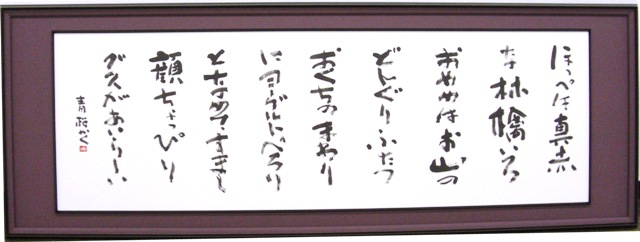 ほっぺは真赤
な林檎いろ
おめめはお山の
どんぐりふたつ
おくちのまわり
にヨーグルトぺろり
となめてすまし
顔ちょっぴり
があいらしい